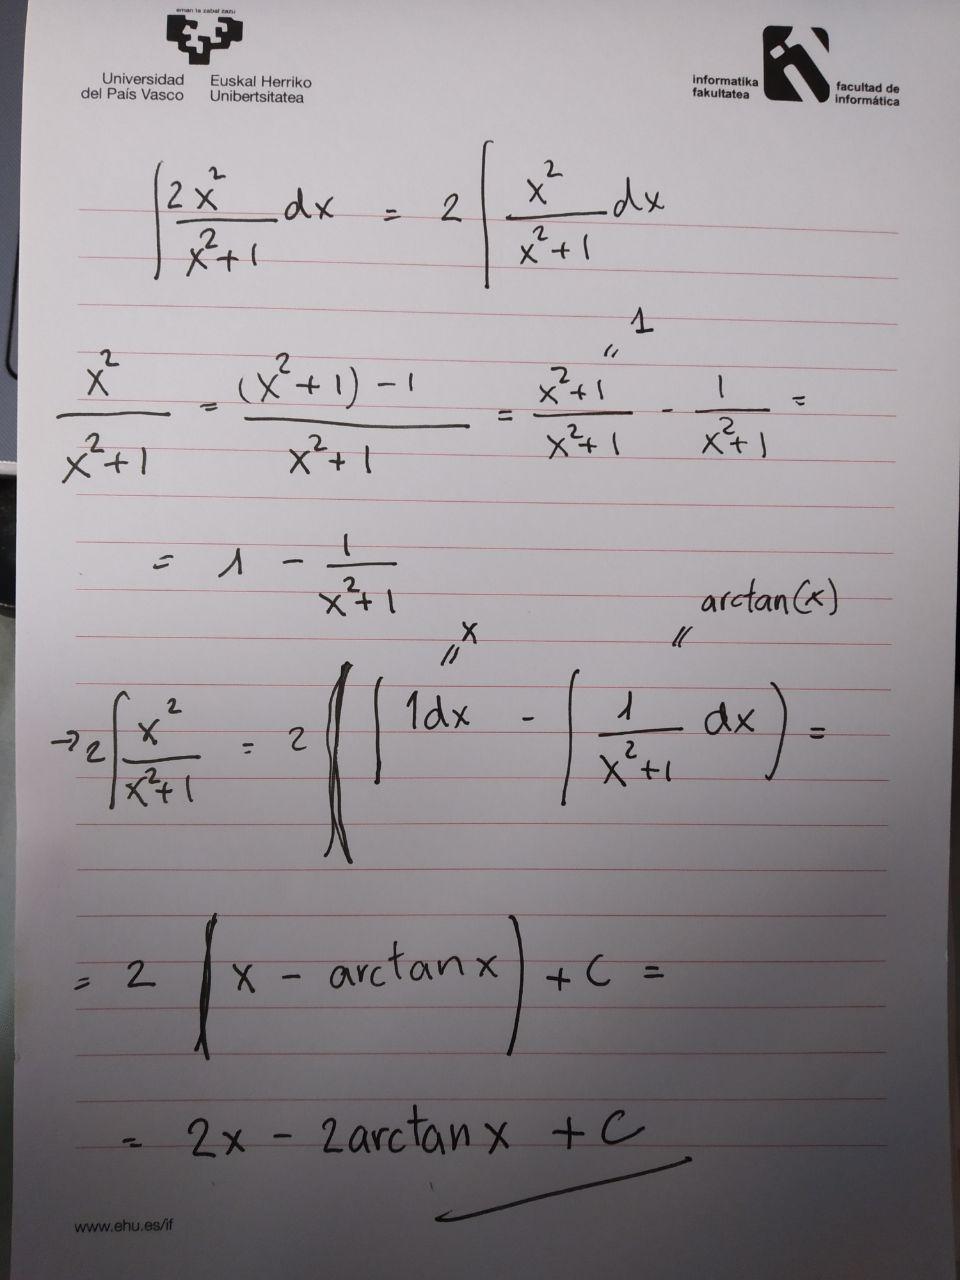 eman ta zabal zazu
Universidad del País Vasco
Euskal Herriko Unibertsitatea
informatika fakultatea
facultad de informática
∫ 2x²/(x²+1) dx = 2 ∫ x²/(x²+1) dx
x²/(x²+1) = ((x²+1) - 1)/(x²+1) = (x²+1)/(x²+1) " 1 - 1/(x²+1) =
= 1 - 1/(x²+1)
" x " arctan(x)
→ 2 ∫ x²/(x²+1) = 2 ( ∫ 1dx - ∫ 1/(x²+1) dx ) =
= 2 ( x - arctan x ) + C =
= 2x - 2arctan x + C
www.ehu.es/if